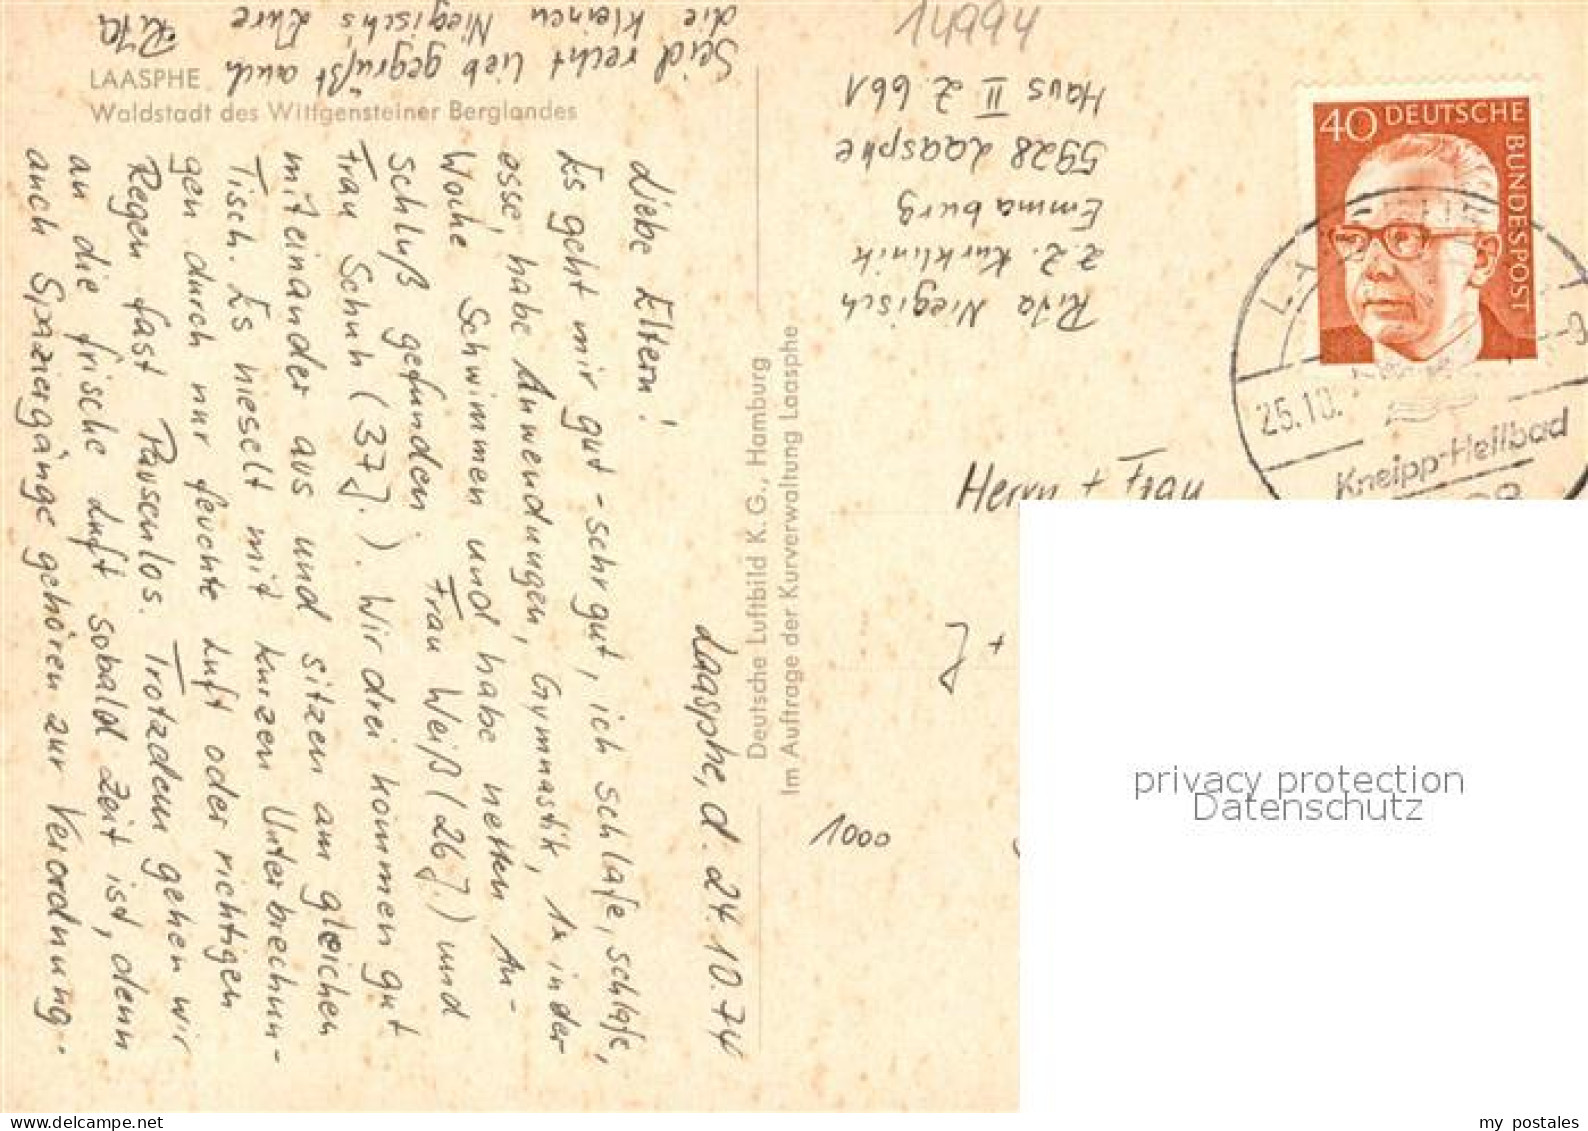 LAASPHE
Waldstadt des Wittgensteiner Berglandes
Laasphe, d. 24.10.74
Liebe Eltern!
Es geht mir gut - sehr gut, ich schlafe, schlafe,
esse, habe Anwendungen, Gymnastik, 1x in der
Woche Schwimmen und habe netten An-
schluß gefunden. Frau Weiß (26 J.) und
Frau Schuh (37 J.). Wir drei kommen gut
miteinander aus und sitzen am gleichen
Tisch. Es nieselt mit kurzen Unterbrechun-
gen durch nur feuchte Luft oder richtigen
Regen fast Pausenlos. Trotzdem gehen wir
an die frische Luft sobald Zeit ist, denn
auch Spaziergänge gehören zur Verordnung.
Seid recht lieb gegrüßt auch
die kleinen Niegisch's Eure
Rita
Deutsche Luftbild K.G., Hamburg
Im Auftrage der Kurverwaltung Laasphe
14994
Rita Niegisch
z.Z. Kurklinik
Emmaburg
5928 Laasphe
Haus II Z. 661
40 DEUTSCHE
BUNDESPOST
25.10.
Kneipp-Heilbad
Herrn + Frau
1000
privacy protection
Datenschutz
my postales